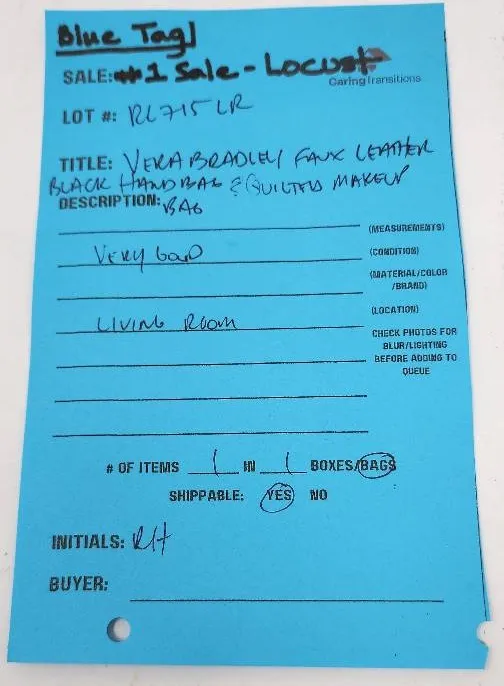 Blue Tag
SALE: #1 Sale - Locust
Caring Transitions
LOT #: RL715LR
TITLE: VERA BRADLEY FAUX LEATHER
BLACK HANDBAG & QUILTED MAKEUP
DESCRIPTION: BAG
(MEASUREMENTS)
VERY GOOD (CONDITION)
(MATERIAL/COLOR
/BRAND)
LIVING ROOM (LOCATION)
CHECK PHOTOS FOR
BLUR/LIGHTING
BEFORE ADDING TO
QUEUE
# OF ITEMS 1 IN 1 BOXES/BAGS
SHIPPABLE: YES NO
INITIALS: RH
BUYER: